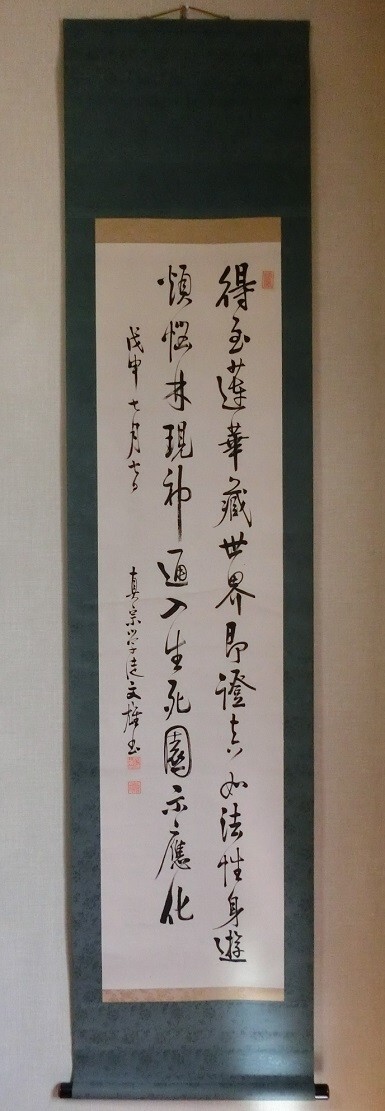 得至蓮華藏世界即證真如法性身遊
煩惱林現神通入生死園示應化
戊申七月七日
真宗学徒文雄書